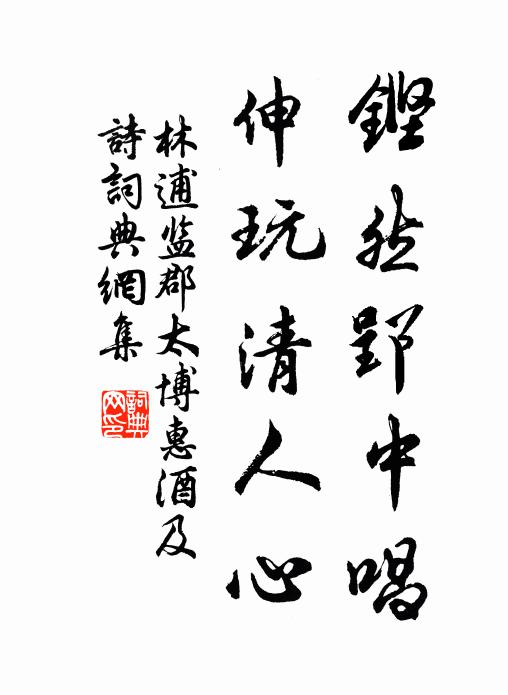 鏗然郢中唱
伸玩清人心
林逋监郡太博惠酒及
詩詞典網集
詞典网印